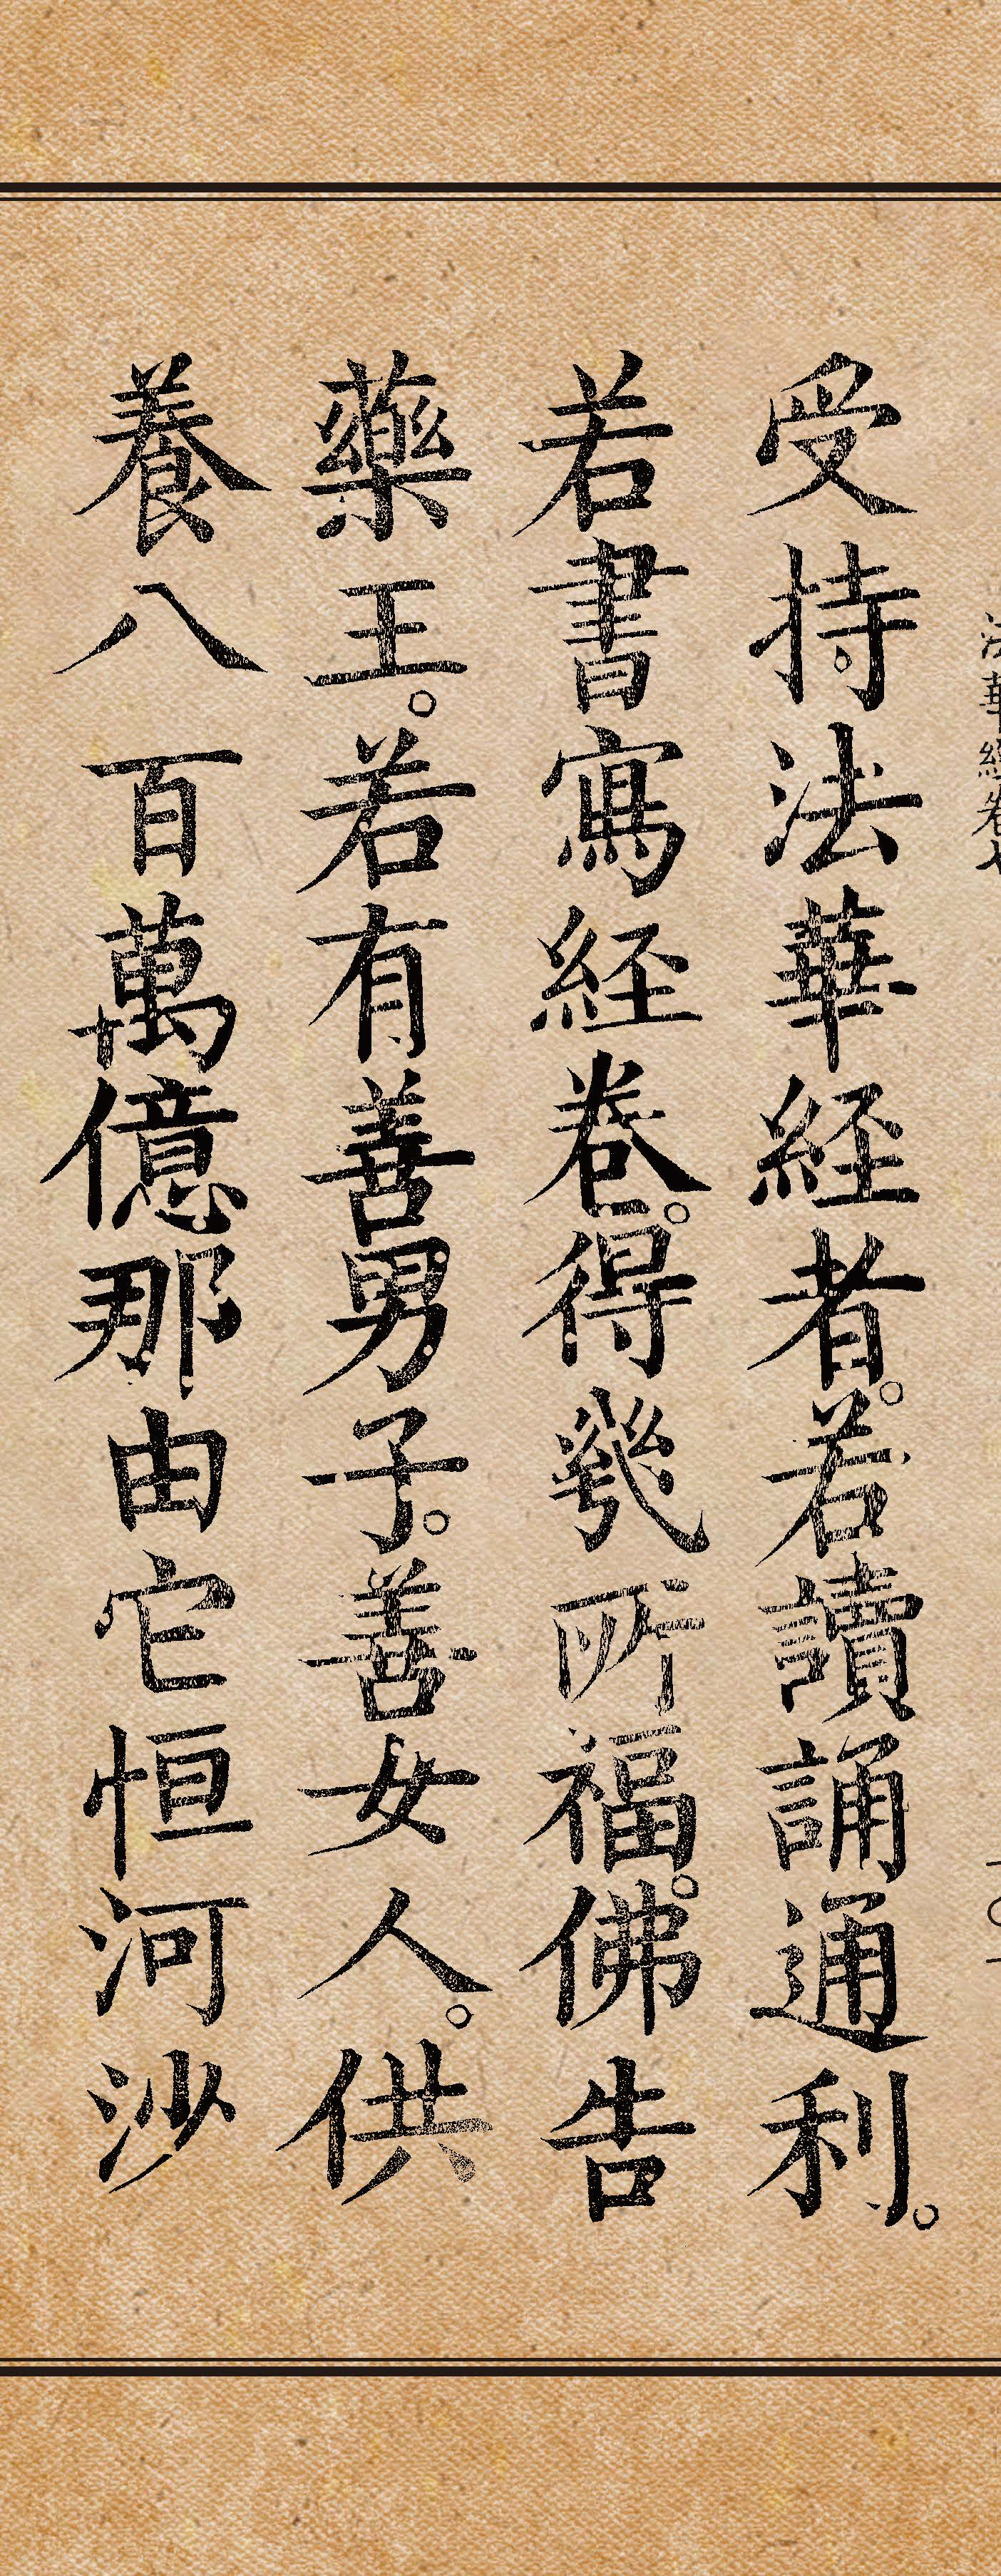 受持法華経者。若讀誦通利。
若書寫経卷。得㡬所福。佛告
藥王。若有善男子。善女人。供
養八百萬億那由它恒河沙